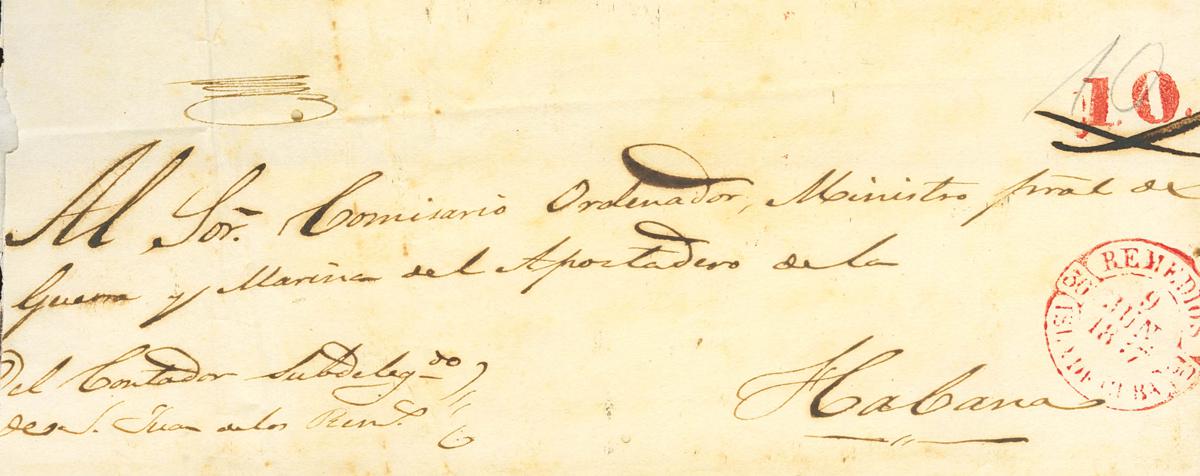 10
10.
Al Sor. Comisario Ordenador, Ministro pràl de
Guerra y Marina del Apostadero de la
Habana
REMEDIOS
9
JUN
ISLA DE CUBA
Del Contador Subdelegdo
de S. Juan de los Rem.s